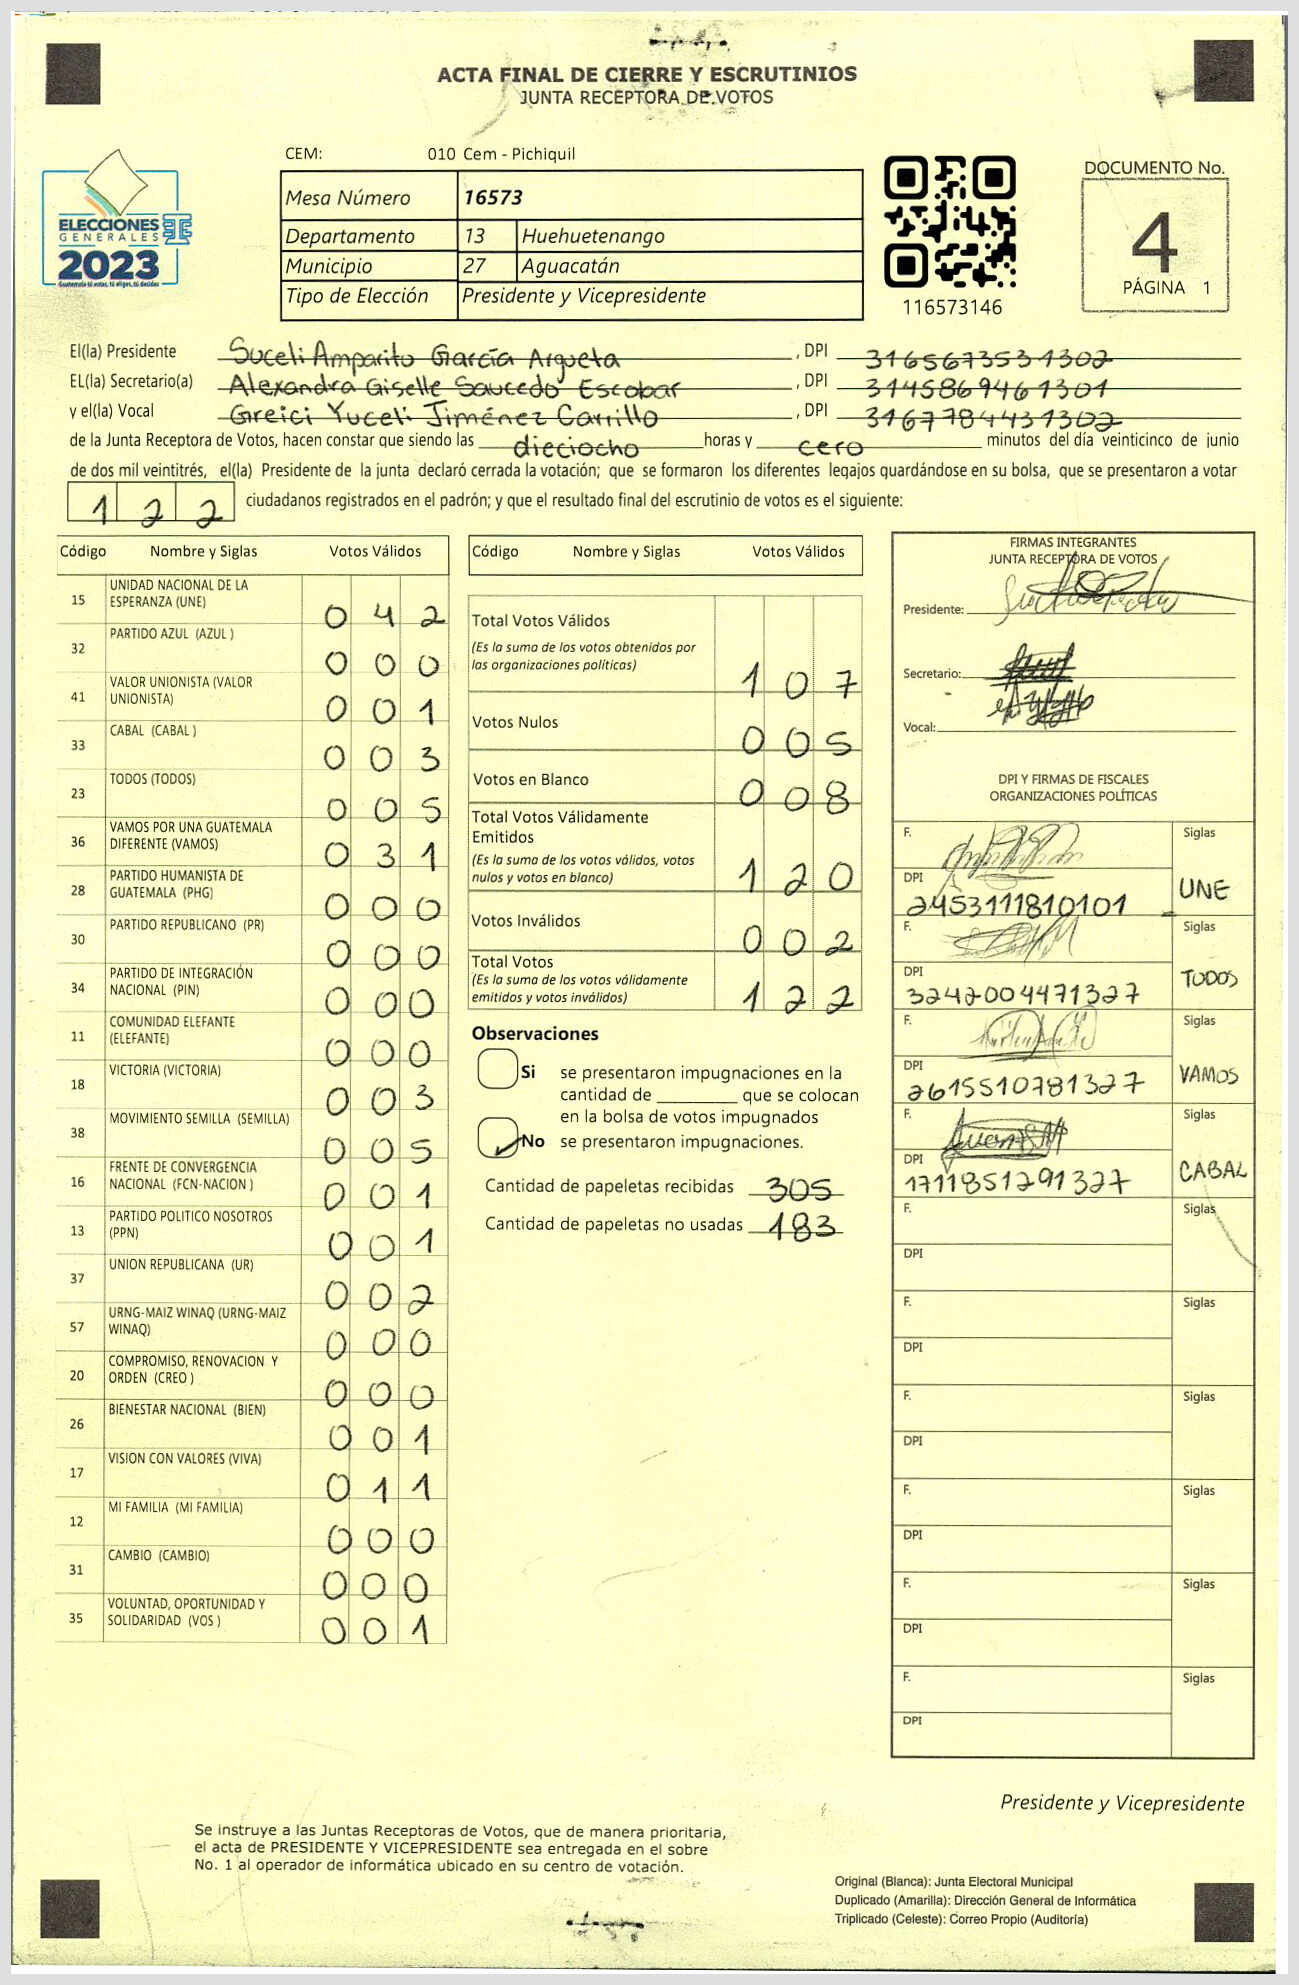 ACTA FINAL DE CIERRE Y ESCRUTINIOS
JUNTA RECEPTORA DE VOTOS
CEM: 010 Cem - Pichiquil
Mesa Número 16573
Departamento 13 Huehuetenango
Municipio 27 Aguacatán
Tipo de Elección Presidente y Vicepresidente
ELECCIONES
GENERALES
2023
Guatemala tú votas, tú eliges, tú decides
116573146
DOCUMENTO No.
4
PÁGINA 1
El(la) Presidente Suceli Amparito García Argueta , DPI 3165673531302
EL(la) Secretario(a) Alexandra Giselle Saucedo Escobar , DPI 3145869461301
y el(la) Vocal Greici Yuceli Jiménez Carrillo , DPI 3167784431302
de la Junta Receptora de Votos, hacen constar que siendo las dieciocho horas y cero minutos del día veinticinco de junio
de dos mil veintitrés, el(la) Presidente de la junta declaró cerrada la votación; que se formaron los diferentes legajos guardándose en su bolsa, que se presentaron a votar
1 2 2 ciudadanos registrados en el padrón; y que el resultado final del escrutinio de votos es el siguiente:
Código Nombre y Siglas Votos Válidos
15 UNIDAD NACIONAL DE LA
ESPERANZA (UNE) 0 4 2
32 PARTIDO AZUL (AZUL ) 0 0 0
41 VALOR UNIONISTA (VALOR
UNIONISTA) 0 0 1
33 CABAL (CABAL ) 0 0 3
23 TODOS (TODOS) 0 0 5
36 VAMOS POR UNA GUATEMALA
DIFERENTE (VAMOS) 0 3 1
28 PARTIDO HUMANISTA DE
GUATEMALA (PHG) 0 0 0
30 PARTIDO REPUBLICANO (PR) 0 0 0
34 PARTIDO DE INTEGRACIÓN
NACIONAL (PIN) 0 0 0
11 COMUNIDAD ELEFANTE
(ELEFANTE) 0 0 0
18 VICTORIA (VICTORIA) 0 0 3
38 MOVIMIENTO SEMILLA (SEMILLA) 0 0 5
16 FRENTE DE CONVERGENCIA
NACIONAL (FCN-NACION ) 0 0 1
13 PARTIDO POLITICO NOSOTROS
(PPN) 0 0 1
37 UNION REPUBLICANA (UR) 0 0 2
57 URNG-MAIZ WINAQ (URNG-MAIZ
WINAQ) 0 0 0
20 COMPROMISO, RENOVACION Y
ORDEN (CREO ) 0 0 0
26 BIENESTAR NACIONAL (BIEN) 0 0 1
17 VISION CON VALORES (VIVA) 0 1 1
12 MI FAMILIA (MI FAMILIA) 0 0 0
31 CAMBIO (CAMBIO) 0 0 0
35 VOLUNTAD, OPORTUNIDAD Y
SOLIDARIDAD (VOS ) 0 0 1
Código Nombre y Siglas Votos Válidos
Total Votos Válidos
(Es la suma de los votos obtenidos por
las organizaciones políticas) 1 0 7
Votos Nulos 0 0 5
Votos en Blanco 0 0 8
Total Votos Válidamente
Emitidos
(Es la suma de los votos válidos, votos
nulos y votos en blanco) 1 2 0
Votos Inválidos 0 0 2
Total Votos
(Es la suma de los votos válidamente
emitidos y votos inválidos) 1 2 2
Observaciones
Si se presentaron impugnaciones en la
cantidad de ________ que se colocan
en la bolsa de votos impugnados
No se presentaron impugnaciones.
Cantidad de papeletas recibidas 305
Cantidad de papeletas no usadas 183
FIRMAS INTEGRANTES
JUNTA RECEPTORA DE VOTOS
Presidente:
Secretario:
Vocal:
DPI Y FIRMAS DE FISCALES
ORGANIZACIONES POLÍTICAS
F. Siglas
DPI 2453111810101 UNE
F. Siglas
DPI 3242004471327 TODOS
F. Siglas
DPI 2615510781327 VAMOS
F. Siglas
DPI 1711851291327 CABAL
F. Siglas
DPI
F. Siglas
DPI
F. Siglas
DPI
F. Siglas
DPI
F. Siglas
DPI
F. Siglas
DPI
Presidente y Vicepresidente
Se instruye a las Juntas Receptoras de Votos, que de manera prioritaria,
el acta de PRESIDENTE Y VICEPRESIDENTE sea entregada en el sobre
No. 1 al operador de informática ubicado en su centro de votación.
Original (Blanca): Junta Electoral Municipal
Duplicado (Amarilla): Dirección General de Informática
Triplicado (Celeste): Correo Propio (Auditoría)